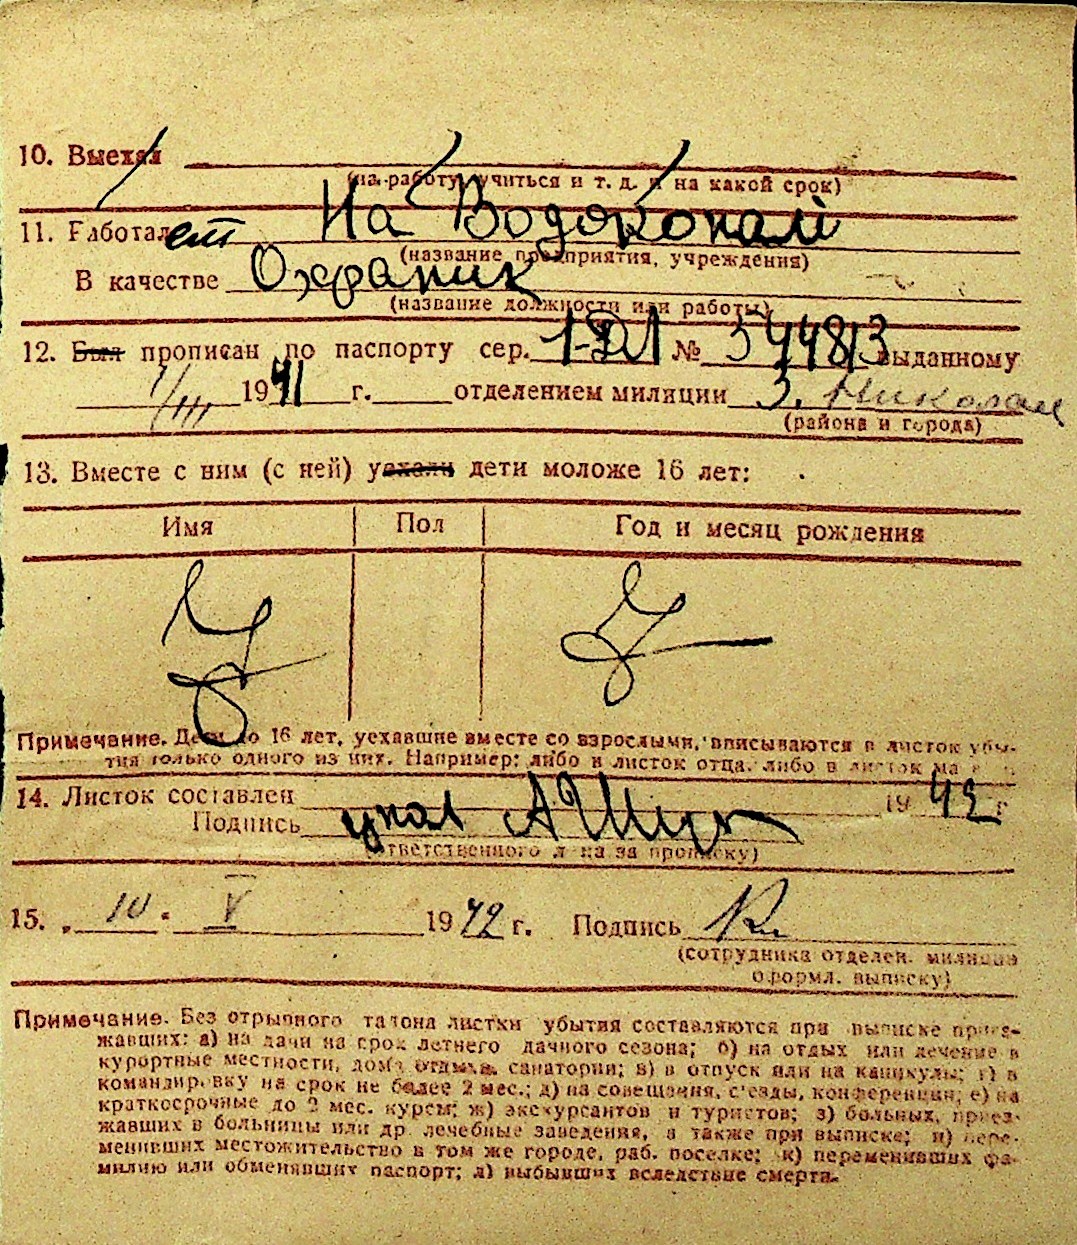 10. Выехал
(на работу, учиться и т. д. и на какой срок)
11. Работает На Водоканал
(название предприятия, учреждения)
В качестве Охраник
(название должности или работы)
12. Был прописан по паспорту сер. № 544813 выданному
1/III 1941 г. отделением милиции
(района и города)
13. Вместе с ним (с ней) уехали дети моложе 16 лет:
Имя Пол Год и месяц рождения
Примечание. Дети до 16 лет, уехавшие вместе со взрослыми, вписываются в листок убы-
тия только одного из них. Например: либо в листок отца, либо в листок
14. Листок составлен 1942 г
Подпись
(ответственного л-ца за прописку)
15. „ 10 " V 1942 г. Подпись
(сотрудника отделен. милиции
оформл. выписку)
Примечание. Без отрывного талона листки убытия составляются при выписке приез-
жавших: а) на дачи на срок летнего дачного сезона; б) на отдых или лечение в
курортные местности, дома отдыха, санатории; в) в отпуск или на каникулы; г) в
командировку на срок не более 2 мес.; д) на совещания, с'езды, конференции; е) на
краткосрочные до 2 мес. курсы; ж) экскурсантов и туристов; з) больных, приез-
жавших в больницы или др. лечебные заведения, а также при выписке; и) пере-
менивших местожительство в том же городе, раб. поселке; к) переменивших фа-
милию или обменявших паспорт; л) выбывших вследствие смерти.